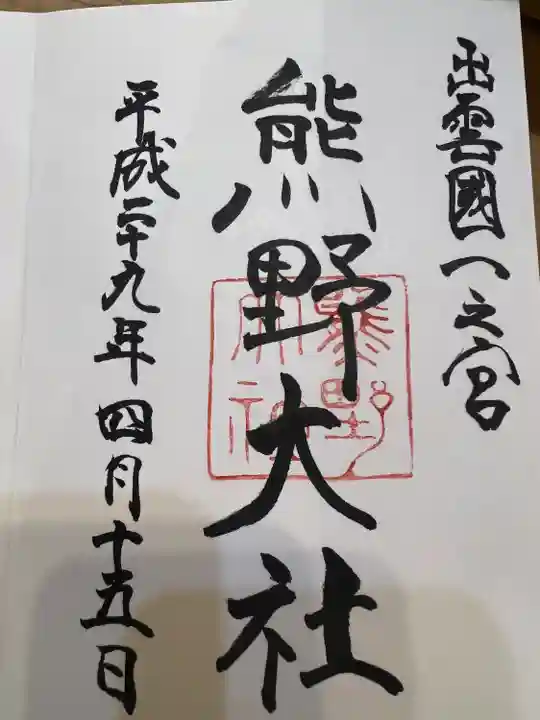 出雲國一之宮
熊野大社
熊野大社
平成二十九年四月十五日